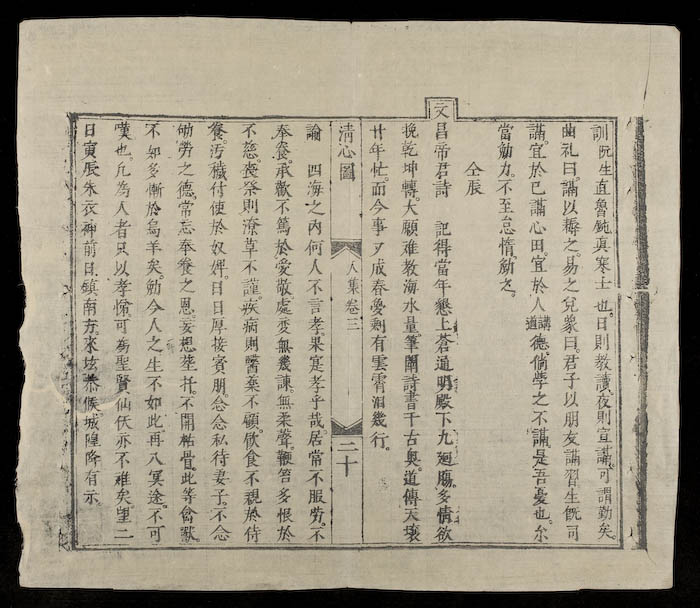 訓阮生直魯鈍真寒士也日則教讀夜則宣講可謂勤矣
曲礼曰講以耨之易之兌象曰君子以朋友講習生既司
講宜於已講心田宜於人講道德倘學之不講是吾憂也尒
當勉力不至怠惰勉之
仝辰
文昌帝君詩 記得當年懇上蒼通明殿下九廻腸多情欲
挽乾坤轉大願难教海水量筆闡詩書千古奧道傳天壤
廿年忙而今事又成春夢剩有雲霄泪幾行
清心圖 人集卷三 二十
諭 四海之內何人不言孝果寔孝乎哉居常不服劳不
奉養承歡不篤於愛敬處变無幾諫無柔聲鞭笞多恨於
不慈喪祭則潦草不謹疾病則醫藥不顧飲食不親於侍
養汚穢付使於奴婢日日厚接賓朋念念私待妻子不念
劬劳之德常忘奉養之恩妄想莖托不開枯骨此等禽獸
不如多慚於烏羊矣勉今人之生不如此再入冥途不可
嘆也凡為人者只以孝悌可為聖賢仙佚亦不难矣望二
日寅辰朱衣神前日鎮南方來坛恭候城隍降有示